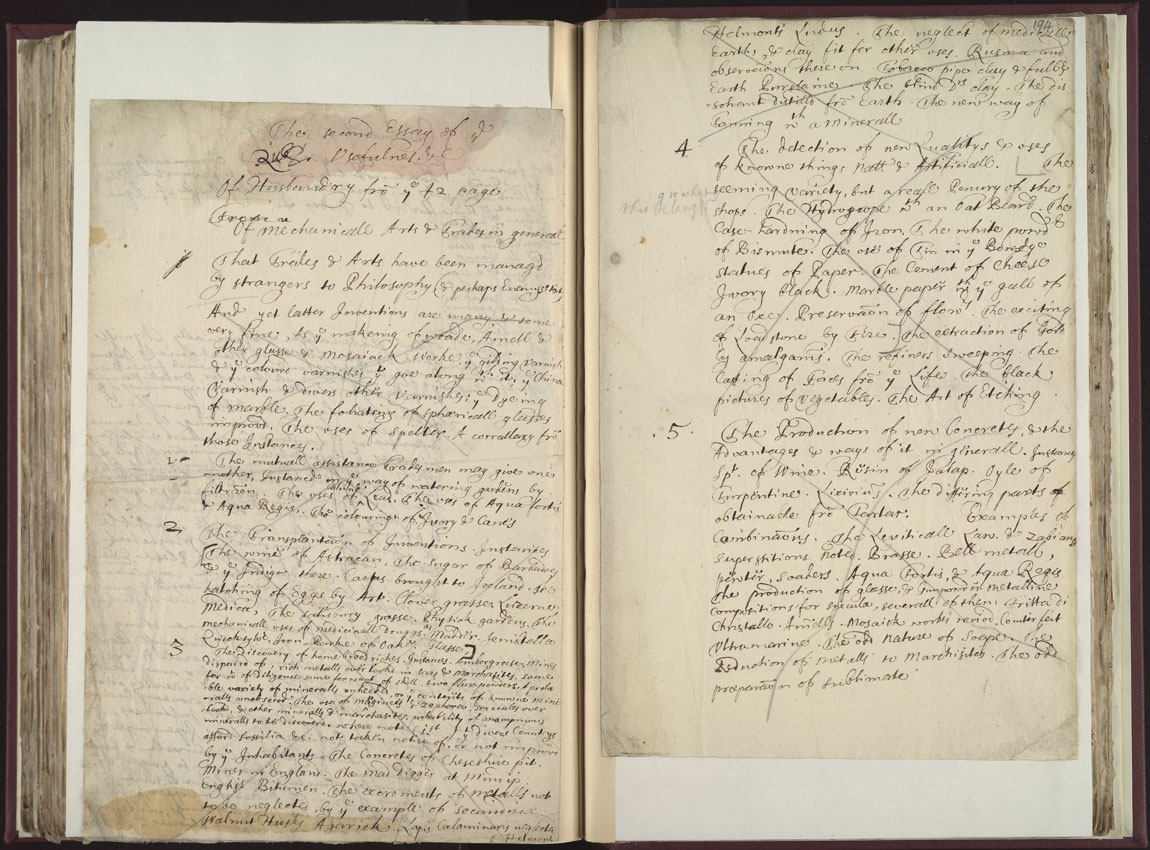 The second Essay of ye
Usefulnes. &c
Of Husbandry fro ye 42 page
From a
Of Mechanicall Arts & Trades in generall
1
That Trades & Arts have been managd
by strangers to Philosophy (& perhaps Enemys to it)
And yet latter Inventions are many & some
very fine, As ye makeing of woade, Amell &
other glasse & Mosaick Worke ye gilding varnish
& ye coloure varnishes yt goe along wth it, ye China
Varnish & divers other varnishes; ye Dyeing
of marble. The foliateing of sphaericall glasses
improvd. The uses of Spelter. A corrollary fro
those Instances.
The mutuall assistance Tradesmen may give one
another, Instancd in ye way of watering gardens by
filtracon. The uses of Lead. The uses of Aqua fortis
& Aqua Regis. The colouring of Ivory & Canes
2
The Transplantacon of Inventions. Instances
The wine of Astracan. The Sugar of Barbados
& ye Indigo there. Carps brought to Ireland. The
hatching of Eggs by Art. Clover grasse Luzerne
Medica, The grasse. Physick gardens. The
mechanicall uses of medicinall druggs as Madder
Iron. Barke of Oake. Glasse]
3
The Discovery of home bredd riches. Instances. Ambergreese, Mines
dispaird of; rich metalls overlookt in ores & marchasites, some
for want of diligence some for want of skill. two fluxpowders. A proba
ble variety of mineralls
oralls unobserved. The use of Magnets & Zaphora, sea coales over
lookt, & other mineralls & marchasites. probability of anonymous
mineralls to be discovered. where most ly divers Countrys
afford fossilia &c. not taken notice of, or not improvd
by ye Inhabitants. The Concretes of Cheseshire pit.
Mines in England. The mad digger at Mendip.
English Bitumen. The excrements of Metalls not
to be neglected, by ye example of secundina
Walnut Husks Agarick. Lapis Calaminaris neglected
Helmont
194
Helmonts Ludus. The neglect of medicinall
Earths, & clay fit for other uses Rusma and
observacons there on Tobacco pipe clay & fullers
Earth Purslaine. The blind Drs clay. The dis
=solvent distilld fro Earth. The new way of
tanning wth a Minerall
4
The detection of new Qualitys & uses
of knowne things Natll & Artificiall. The
seeming variety, but a reall Penury of the
shops. The Hydroscope wth an Oat Beard. The
Case-hardning of Iron. The white powdr
of Bismute. The use of Tin in ye Bowdye
statues of Paper. The Cement of Cheese
Ivory black. Marble paper wth ye gall of
an Oxe. Preservacon of flowrs. The exciting
of Loadstone by Fire. The extraction of Gold
by amalgams. The refiners Sweeping. The
Casting of Faces fro ye Life. The black
pictures of vegetables. The Art of Etching
5
The Production of new Concretes, & the
Advantages & ways of it in generall. Instances
Spt. of Wine. Rosin of Jalap. Oyle of
Turpentine. Lixivius. The differing parts
obtainable fro Tartar. Examples of
Combinacons. The Leviticall Law & Zabians
superstitions noted. Brasse. Bell metall,
pewter, soaders. Aqua fortis, & Aqua Regis
The production of glasse, & Gunpowder. Metalline
compositions for specula, severall of them. Fritta di
Christallo. Amells. Mosaick workes revivd. Counterfeit
Ultramarine. The odd Nature of Soape. The
Reduction of metalls to Marchisites. The odd
preparacon of sublimate